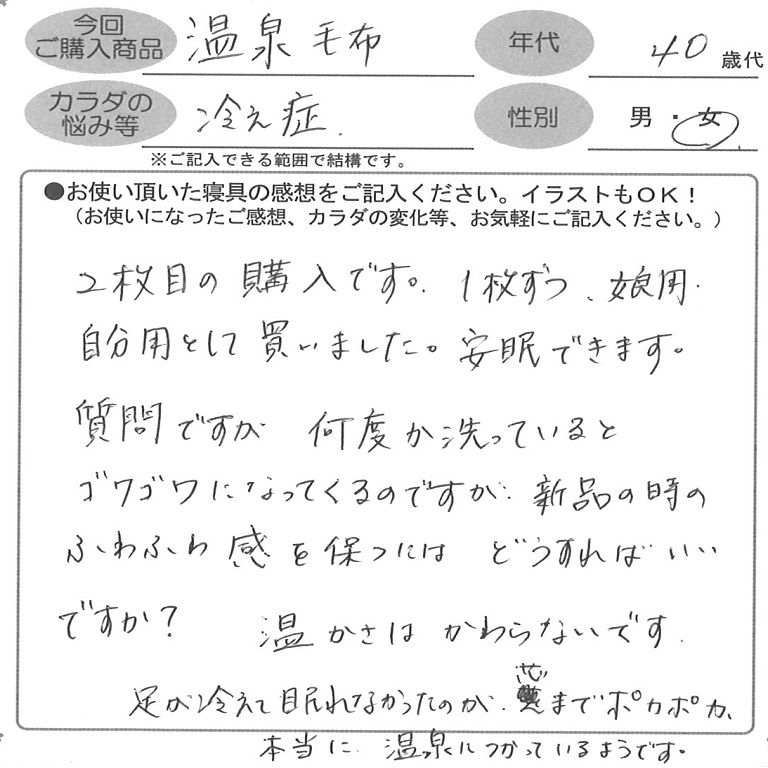 今回
ご購入商品
温泉毛布
年代
40 歳代
カラダの
悩み等
冷え症.
性別
男・女
※ご記入できる範囲で結構です。
●お使い頂いた寝具の感想をご記入ください。イラストもOK！
（お使いになったご感想、カラダの変化等、お気軽にご記入ください。）
2枚目の購入です。1枚ずつ、娘用・
自分用として買いました。安眠できます。
質問ですが 何度か洗っていると
ゴワゴワになってくるのですが、新品の時の
ふわふわ感を保つには どうすればいい
ですか？ 温かさはかわらないです.
足が冷えて眠れなかったのが、芯までポカポカ、
本当に、温泉につかっているようです。